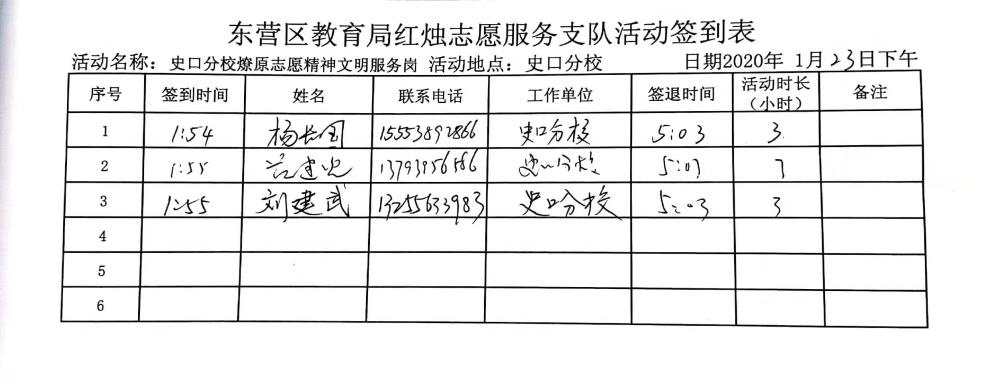 东营区教育局红烛志愿服务支队活动签到表
活动名称：史口分校燎原志愿精神文明服务岗 活动地点：史口分校 日期2020年 1月23日下午
序号 签到时间 姓名 联系电话 工作单位 签退时间 活动时长（小时） 备注
1 1:54 杨长国 15553892866 史口分校 5:03 3
2 1:55 建 史口分校 5:03 3
3 1:55 刘建武 13255633983 史口分校 5:03 3
4
5
6